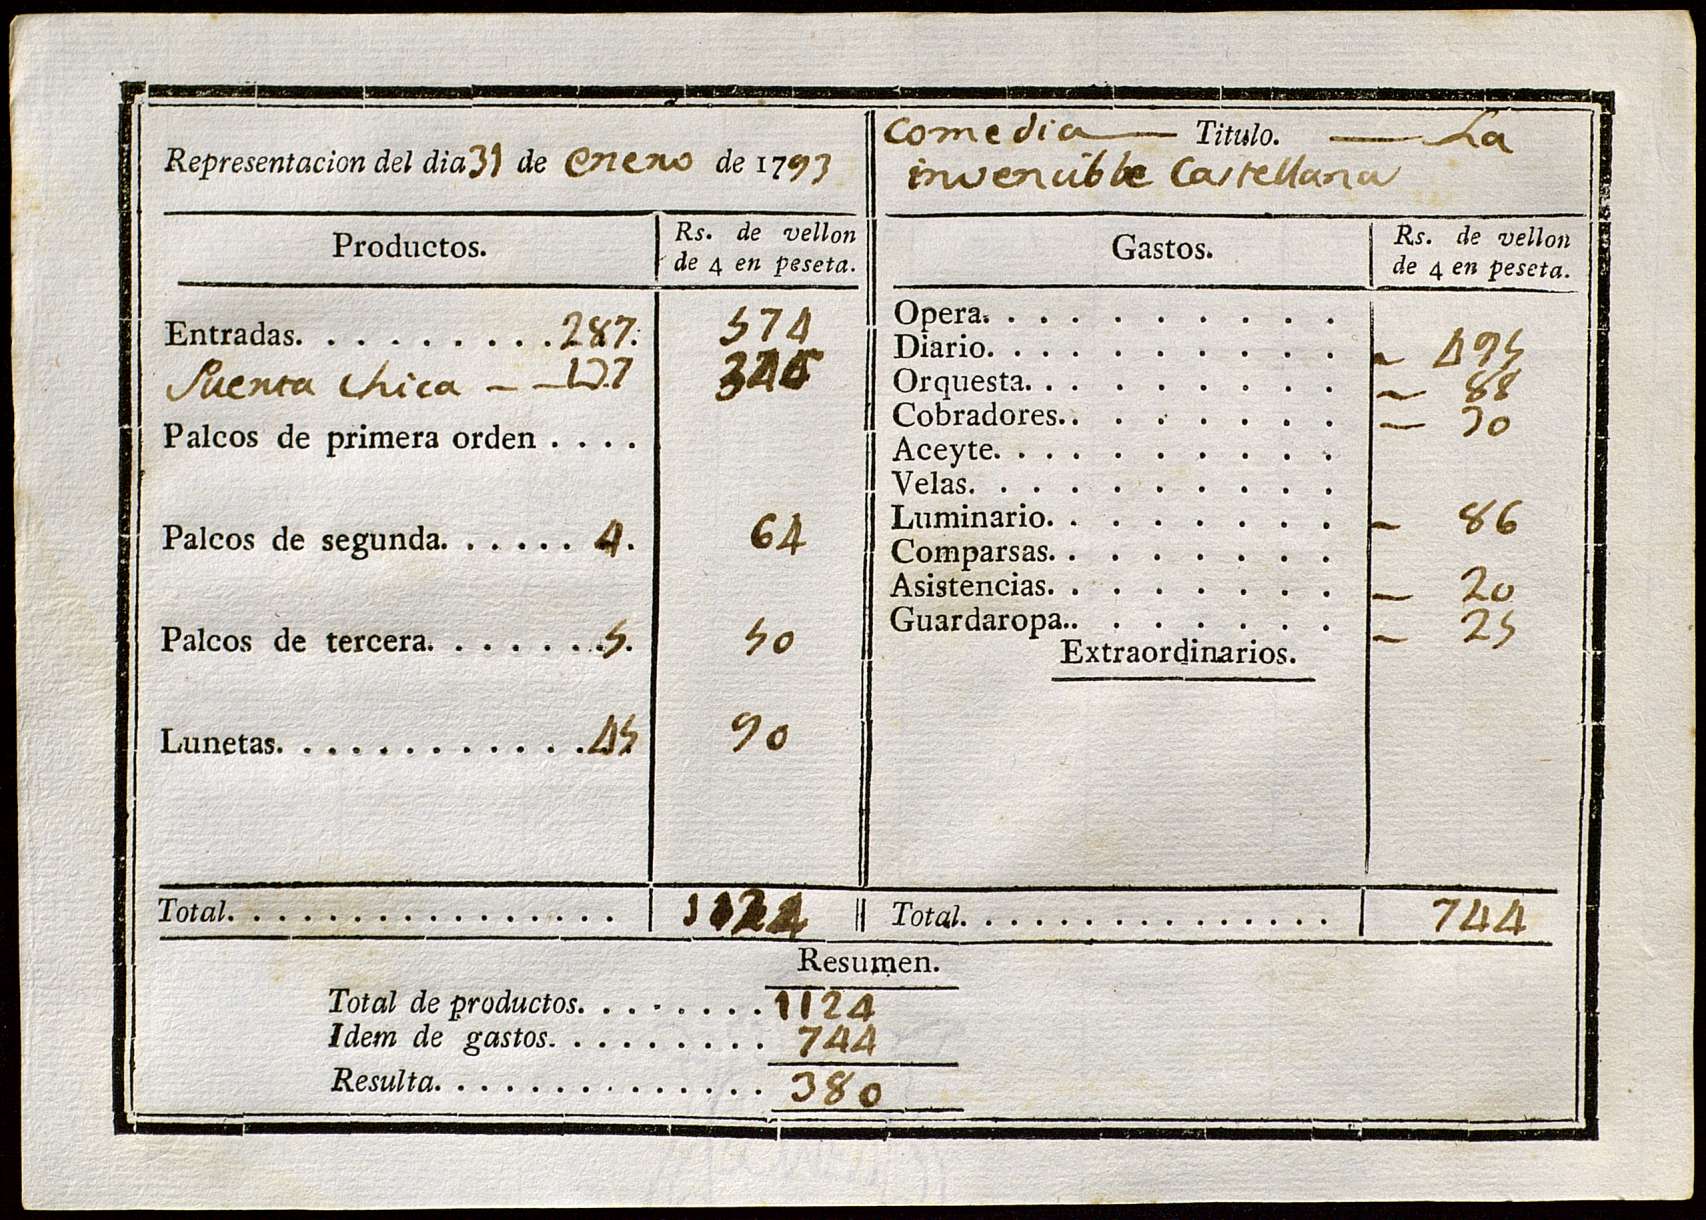 Representacion del dia 31 de enero de 1793
Comedia — Titulo. — La
invencible Castellana
Productos.
Rs. de vellon
de 4 en peseta.
Entradas. . . . . . . . . . 287. 574
Puerta chica — —
Palcos de primera orden . . . .
Palcos de segunda. . . . . . 4. 64
Palcos de tercera. . . . . . . 5. 50
Lunetas. . . . . . . . . . . . . 45 90
Total. . . . . . . . . . . . . . . . 1124
Gastos.
Rs. de vellon
de 4 en peseta.
Opera. . . . . . . . . .
Diario. . . . . . . . . . — 495
Orquesta. . . . . . . . . — 88
Cobradores. . . . . . . . — 30
Aceyte. . . . . . . . . .
Velas. . . . . . . . . .
Luminario. . . . . . . . — 86
Comparsas. . . . . . . .
Asistencias. . . . . . . . — 20
Guardaropa. . . . . . . . — 25
Extraordinarios.
Total. . . . . . . . . . . . . . . . 744
Resumen.
Total de productos. . . . . . . . 1124
Idem de gastos. . . . . . . . . 744
Resulta. . . . . . . . . . . . . . 380